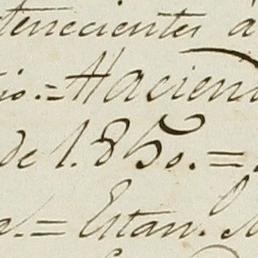 tenecientes á
io.=Haciend
de 1.850.=
a.=Estan.